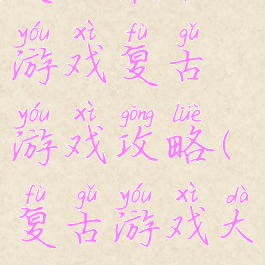 yóu xì fù gǔ
游戏复古
yóu xì gōng lüè
游戏攻略(
fù gǔ yóu xì dà
复古游戏大